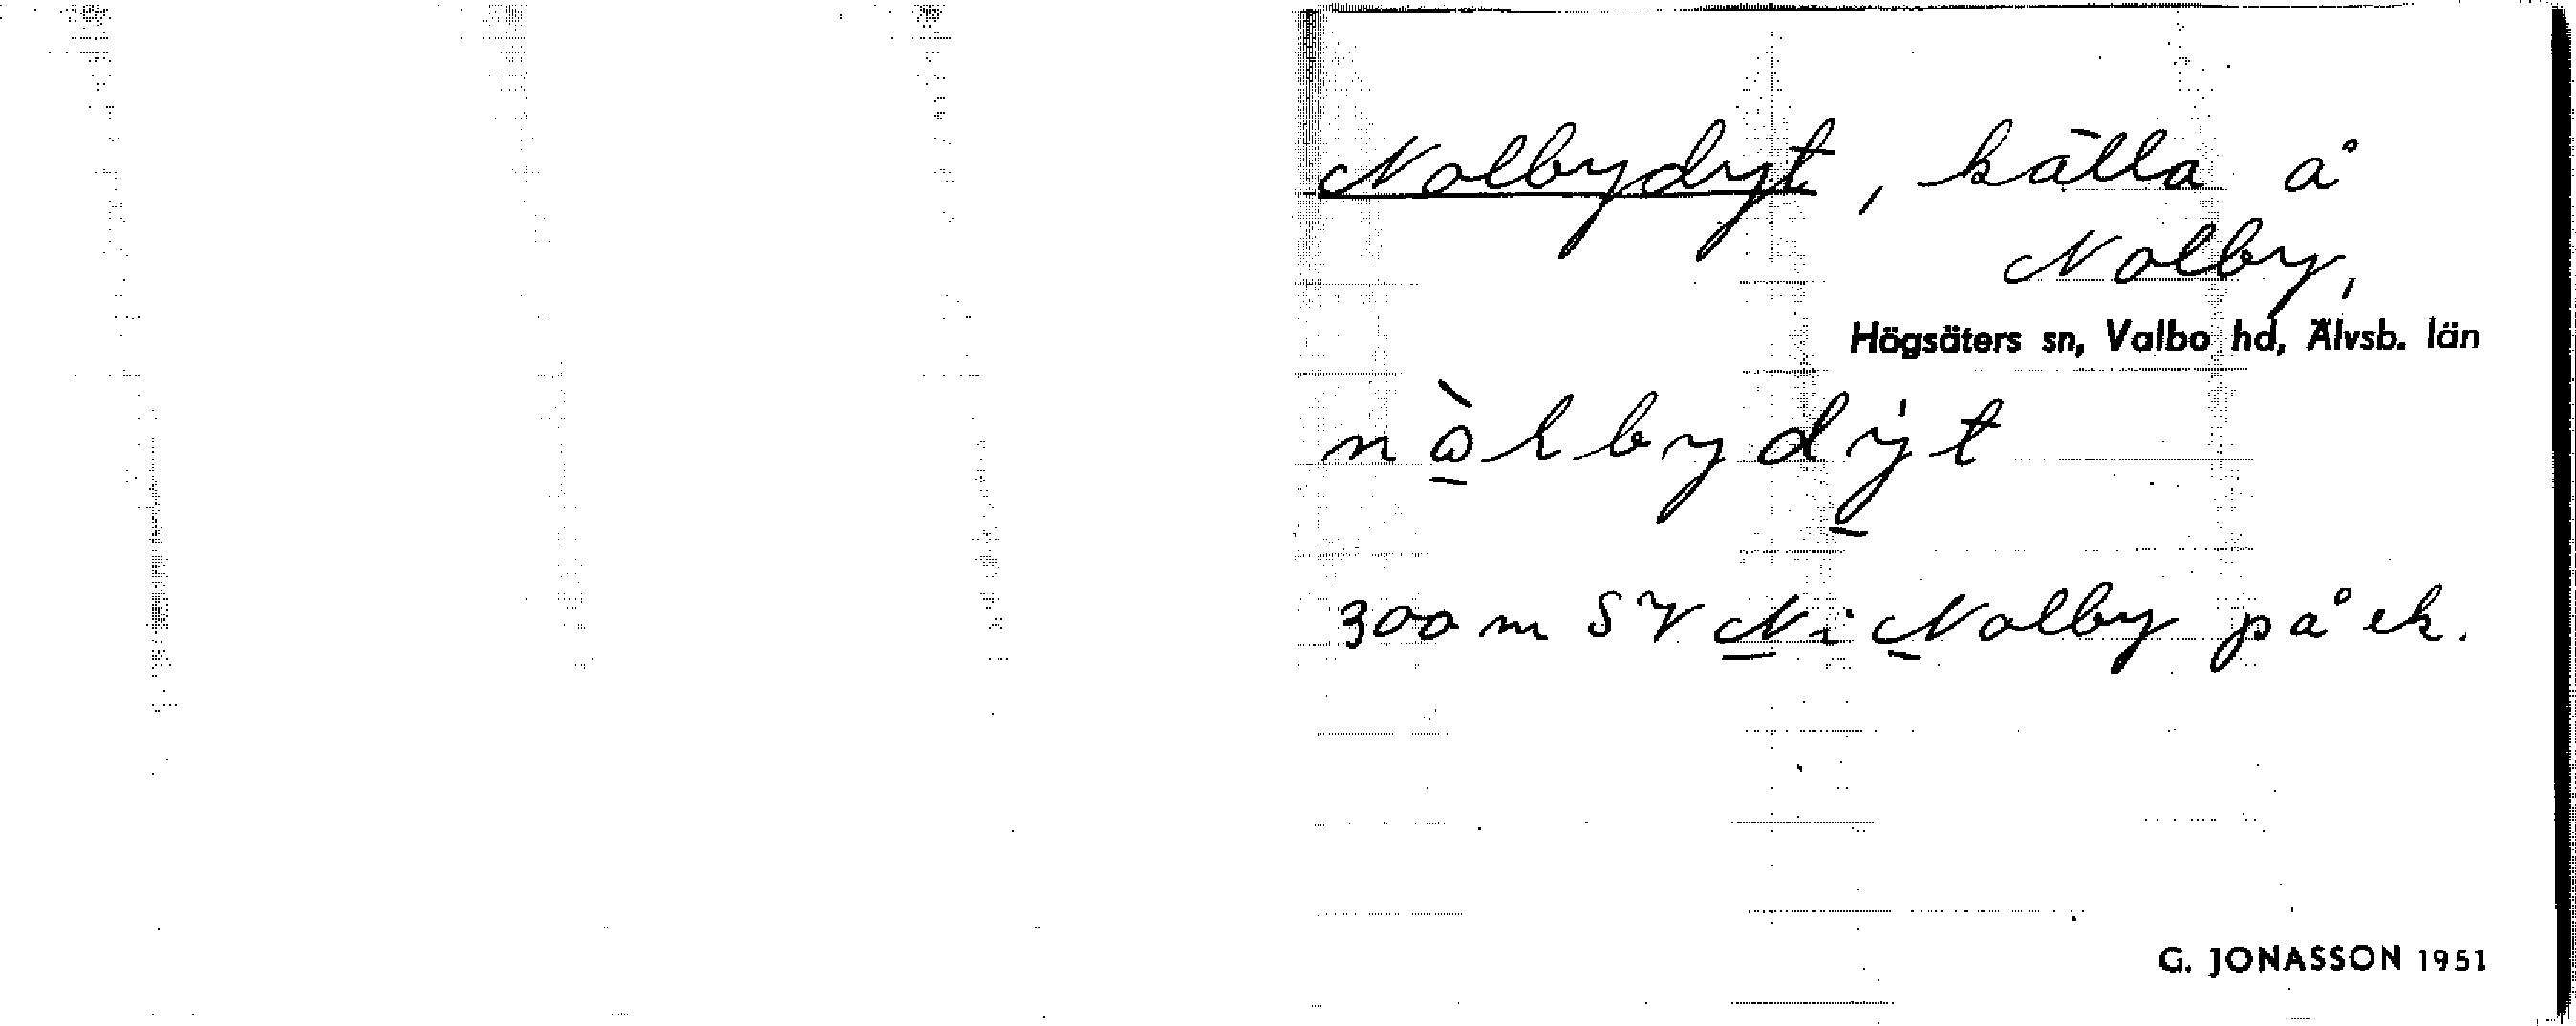 Nolbydyt, källa å
Nolby,
Högsäters sn, Valbo hd, Älvsb. län
300 m SV N i Nolby på ek.
G. JONASSON 1951